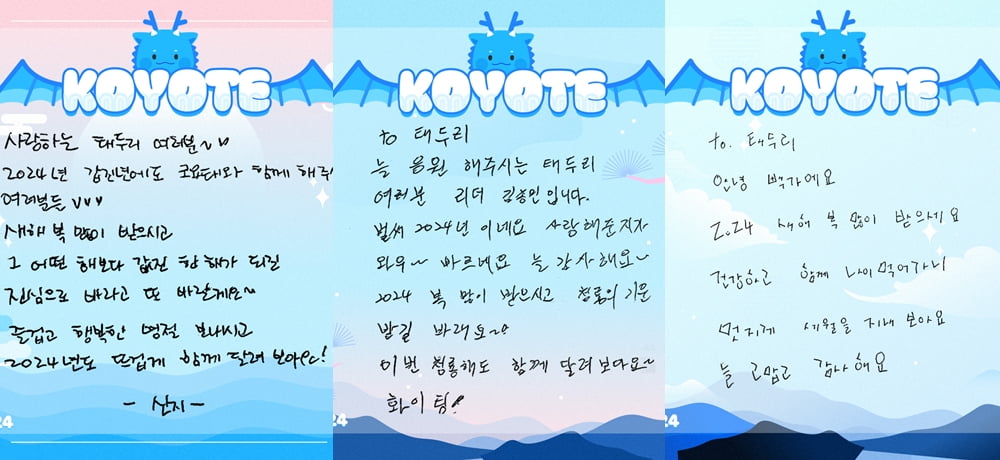 KOYOTE
사랑하는 태두리 여러분~♡♡
2024년 갑진년에도 코요태와 함께 해주
여러분들 ♡♡♡
새해 복 많이 받으시고
그 어떤 해보다 값진 한 해가 되길
진심으로 바라고 또 바랄게요~
즐겁고 행복한 명절 보내시고
2024년도 뜨겁게 함께 달려 보아요!
- 신지 -
24
KOYOTE
to 태두리
늘 응원 해주시는 태두리
여러분 리더 김종민입니다.
벌써 2024년 이네요 사랑해준지가
와우~ 빠르네요 늘 감사해요~
2024 복 많이 받으시고 청룡의 기운
받길 바래요~
이번 청룡해도 함께 달려보아요~
화이팅!
24
KOYOTE
to. 태두리
안녕 빽가예요
2024 새해 복 많이 받으세요
건강하고 함께 나이먹어가니
멋지게 세월을 지내 보아요
늘 고맙고 감사해요
24